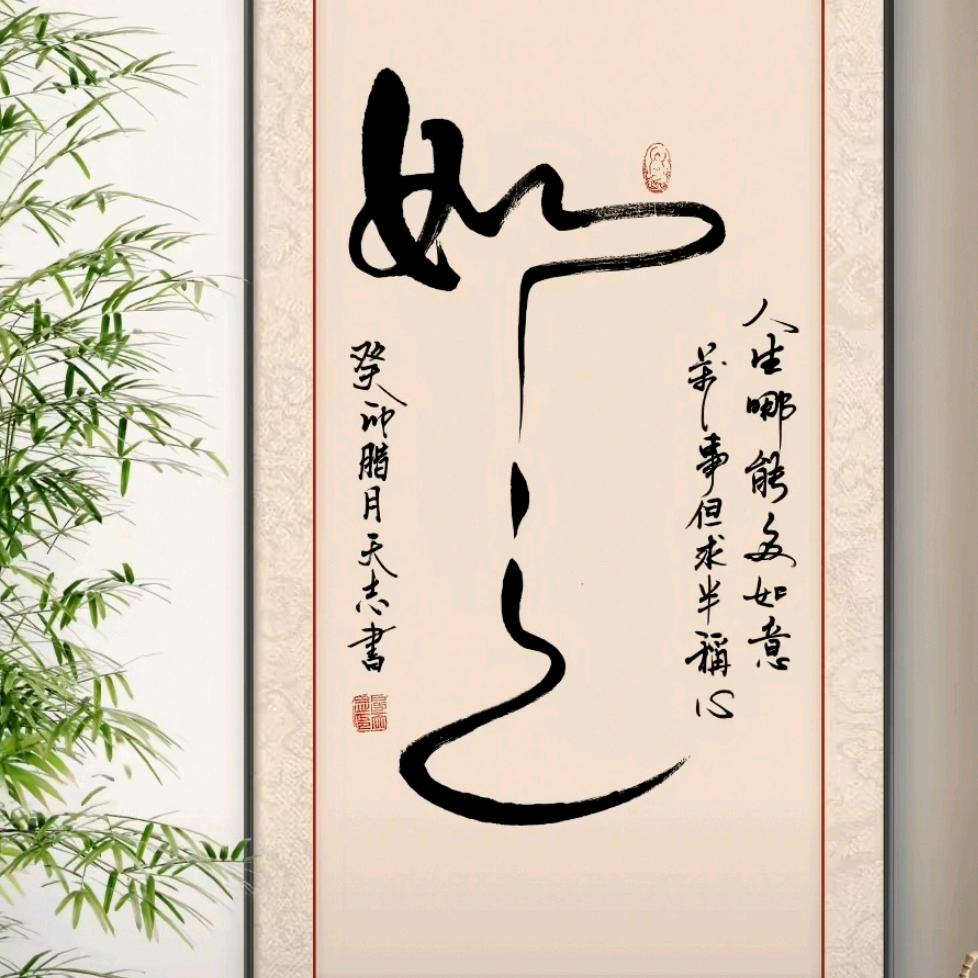 人生哪能多如意
萬事但求半稱心
如
癸卯腊月天志書